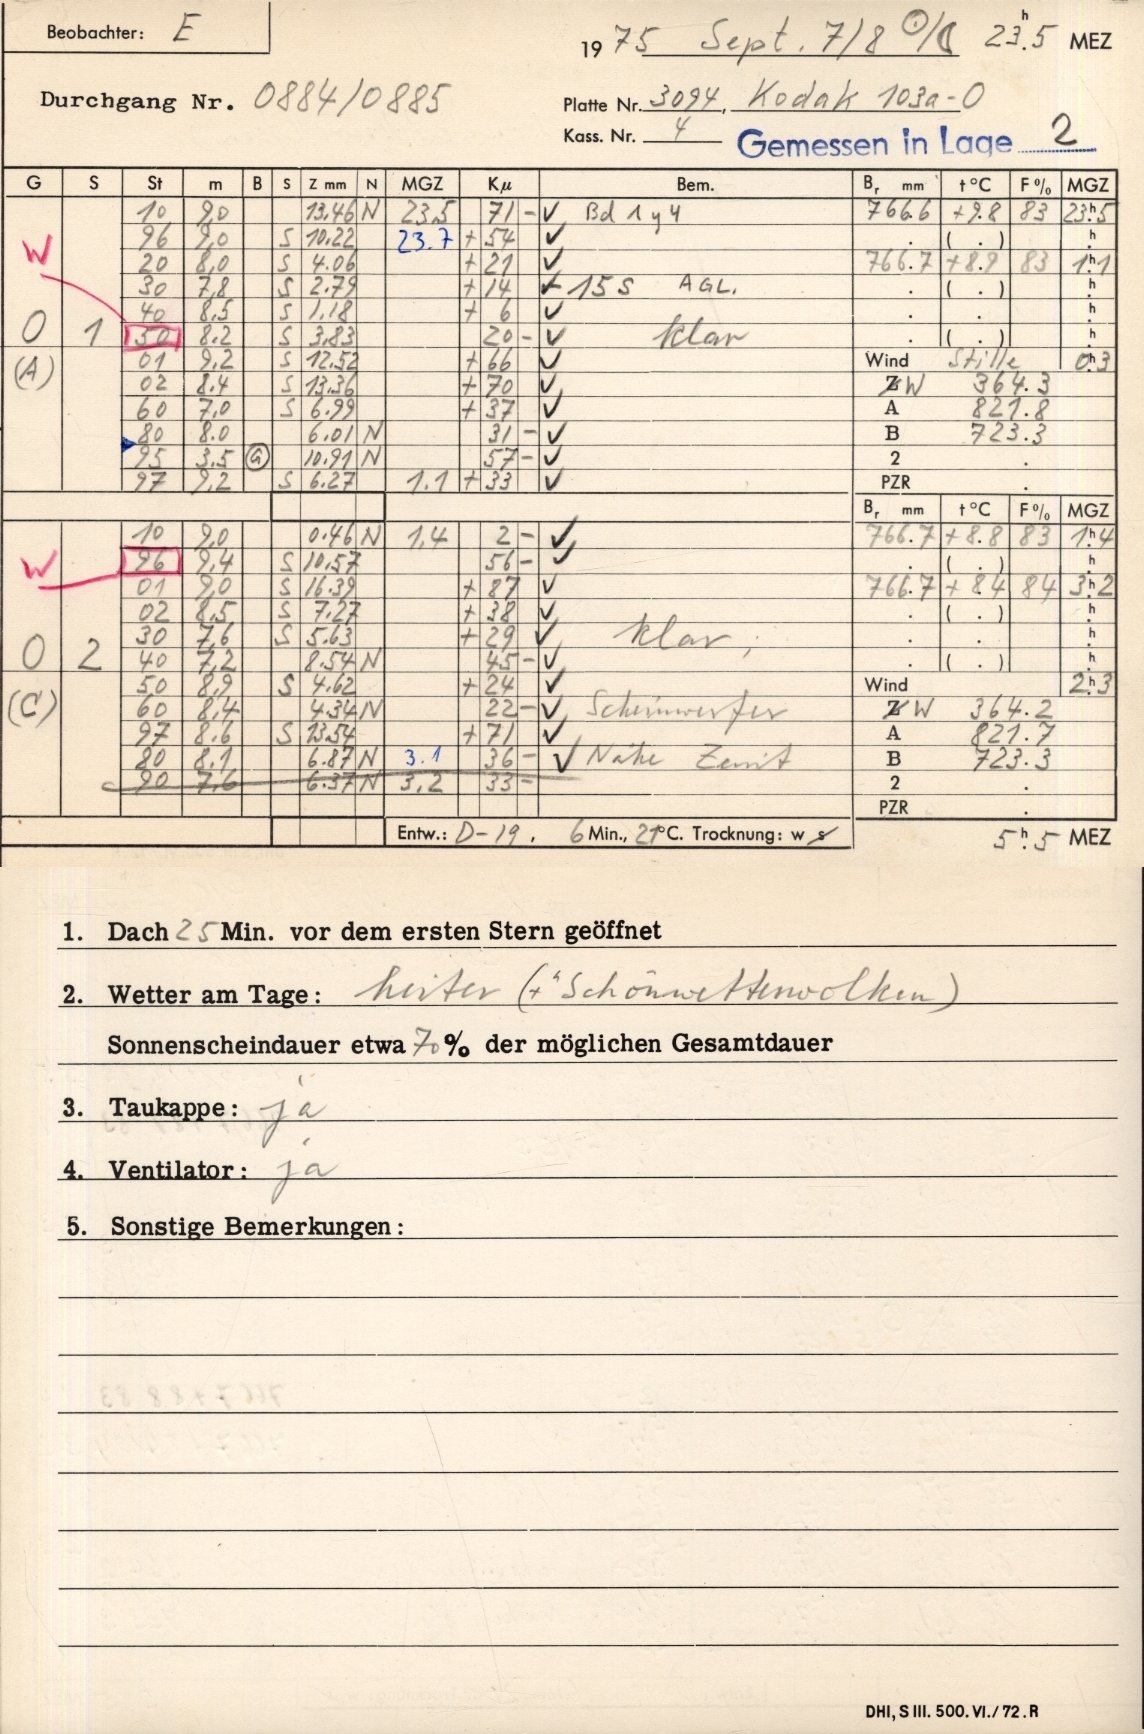 Beobachter: E
1975 Sept. 7/8 ☉/☾ 23h.5 MEZ
Durchgang Nr. 0884/0885
Platte Nr. 3094, Kodak 103a-O
Kass. Nr. 4 Gemessen in Lage 2
G S St m B S Z mm N MGZ Kμ Bem. Br mm t°C F% MGZ
10 9,0 13.46 N 23.5 71 - ✓ Bd 1 y 4 766.6 +9.8 83 23h.5
W 96 9,0 S 10.22 23.7 + 54 ✓ . ( . ) h
20 8,0 S 4.06 + 21 ✓ 766.7 +8.9 83 1h.1
30 7,8 S 2.79 + 14 ✓ 15 S AGL. . ( . ) h
40 8,5 S 1.18 + 6 ✓ . . h
0 1 50 8.2 S 3.83 20 - ✓ klar . ( . ) h
01 9,2 S 12.52 + 66 ✓ Wind Stille 0h.3
(A) 02 8.4 S 13.36 + 70 ✓ Z W 364.3
60 7,0 S 6.99 + 37 ✓ A 821.8
80 8.0 6.01 N 31 - ✓ B 723.3
95 3,5 (a) 10.91 N 57 - ✓ 2 .
97 9,2 S 6.27 1.1 + 33 ✓ PZR .
Br mm t°C F% MGZ
10 9,0 0.46 N 1,4 2 - ✓ 766.7 +8.8 83 1h.4
W 96 9,4 S 10.57 56 - ✓ . ( . ) h
01 9,0 S 16.39 + 87 ✓ 766.7 +8.4 84 3h.2
02 8,5 S 7.27 + 38 ✓ . ( . ) h
30 7,6 S 5.63 + 29 ✓ klar, . . h
0 2 40 7,2 8.54 N 45 - ✓ . ( . ) h
50 8,9 S 4.62 + 24 ✓ Wind 2h.3
(C) 60 8,4 4.34 N 22 - ✓ Scheinwerfer Z W 364.2
97 8.6 S 13.54 + 71 ✓ A 821.7
80 8.1 6.87 N 3.1 36 - ✓ Nähe Zenit B 723.3
90 7,6 6.37 N 3,2 33 - 2 .
PZR .
Entw.: D-19. 6 Min., 21°C. Trocknung: w s 5h.5 MEZ
1. Dach 25 Min. vor dem ersten Stern geöffnet
2. Wetter am Tage: heiter (+ "Schönwetterwolken)
Sonnenscheindauer etwa 70% der möglichen Gesamtdauer
3. Taukappe: ja
4. Ventilator: ja
5. Sonstige Bemerkungen:
DHI, S III. 500. VI./72. R